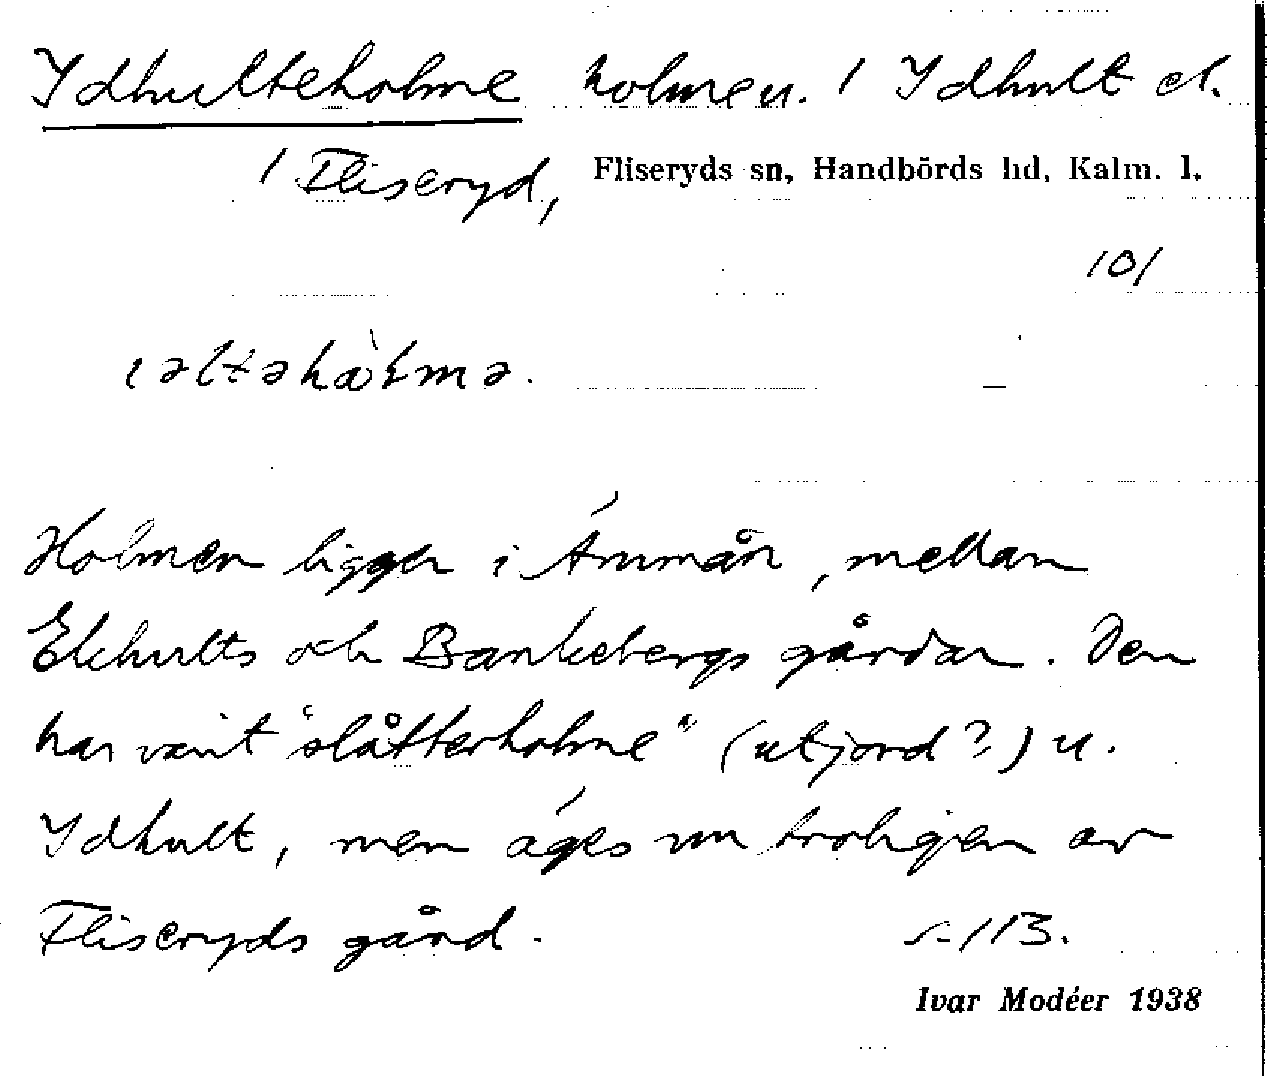 Ydhulteholme holme u. / Ydhult el.
/ Fliseryd, Fliseryds sn, Handbörds hd, Kalm. l.
101
Holmen ligger i Ámmån, mellan
Ekhults och Bankebergs gårdar. Den
har varit "slåtterholme" (utjord?) u.
Ydhult, men äges nu troligen av
Fliseryds gård.
Ivar Modéer 1938